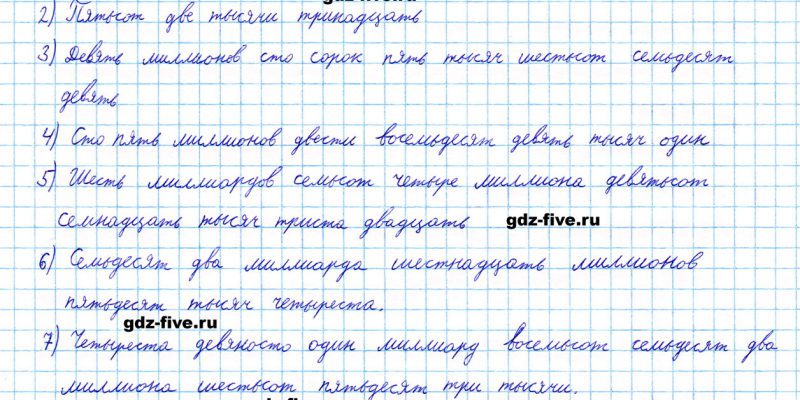 gdz-five.ru
2) Пятьсот две тысячи тринадцать
3) Девять миллионов сто сорок пять тысяч шестьсот семьдесят
девять
4) Сто пять миллионов двести восемьдесят девять тысяч один
5) Шесть миллиардов семьсот четыре миллиона девятьсот
семнадцать тысяч триста двадцать gdz-five.ru
6) Семьдесят два миллиарда шестнадцать миллионов
пятьдесят тысяч четыреста.
gdz-five.ru
7) Четыреста девяносто один миллиард восемьсот семьдесят два
миллиона шестьсот пятьдесят три тысячи.